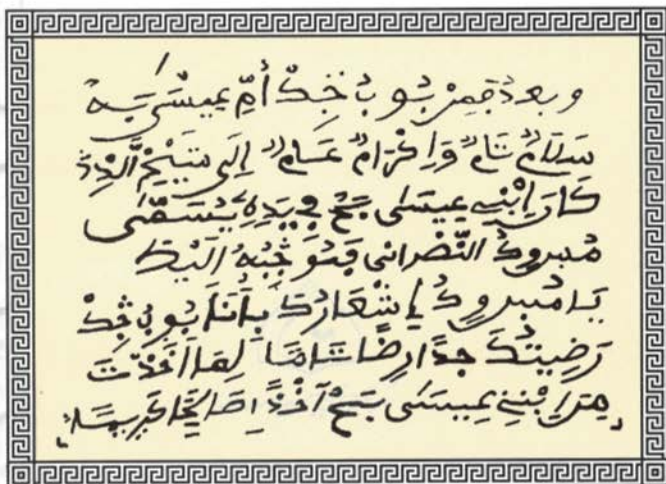 وبعد فمن بوب خجك أم عيسى به
سلام تام وإكرام عام إلى شيخ الذي
كان ابني عيسى بج في يده يسمى
مبروك النصراني فموجبه اليك
يا مبروك إشعارك بأننا بوب خجك
رضيتك جدا رضا تاما لما اخذت
من ابني عيسى بج آخذا